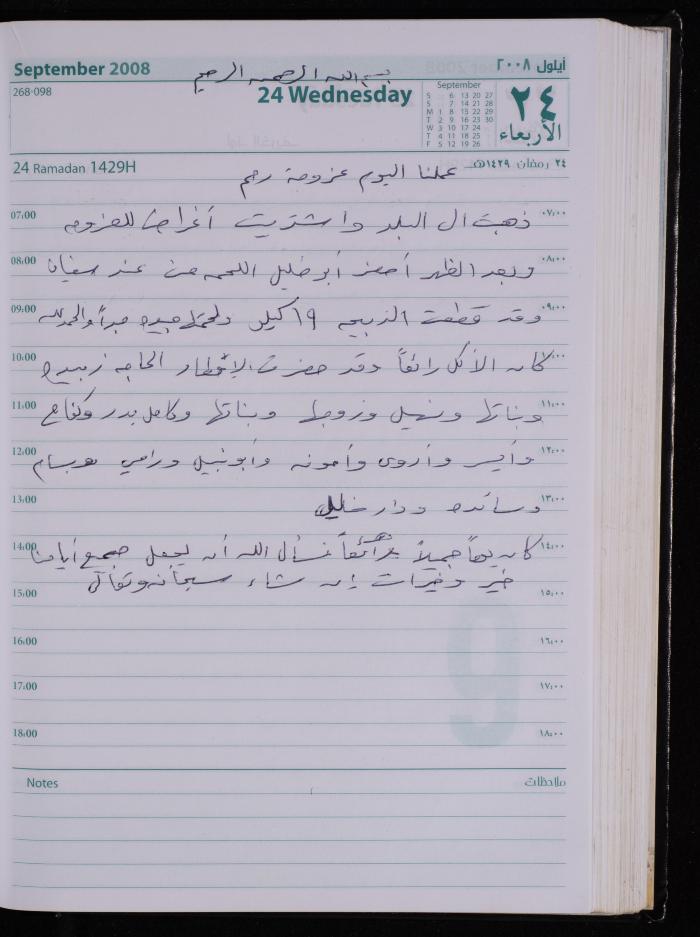 September 2008
بسم الله الرحمن الرحيم
أيلول ٢٠٠٨
268-098
24 Wednesday
September
S 6 13 20 27
S 7 14 21 28
M 1 8 15 22 29
T 2 9 16 23 30
W 3 10 17 24
T 4 11 18 25
F 5 12 19 26
٢٤
الأربعاء
24 Ramadan 1429H
٢٤ رمضان ١٤٢٩هـ
عملنا اليوم عزومة رحم
07:00 ٠٧:٠٠
ذهبت ال البلد واشتريت أغراض للعزومه
08:00 ٠٨:٠٠
وبعد الظهر أحضر أبو خليل اللحمه من عند سفيان
09:00 ٠٩:٠٠
وقد قطعت الذبيحه ١٩ كيلو ولحمتها جيده جداً والحمد لله
10:00 ١٠:٠٠
كان الأكل رائعاً وقد حضرت الإفطار الحاجه زبيده
11:00 ١١:٠٠
وبناتها ونهيل وزوجها وبناتها وكامل بدر وكفاح
12:00 ١٢:٠٠
وأيسر وأروى وأمونه وأبو نبيل ورامي وبسام
13:00 ١٣:٠٠
وسائده ودار خليل
14:00 ١٤:٠٠
كان يوماً جميلاً رائعاً نسأل الله أن يجعل جميع أيامنا
خير وخيرات إن شاء سبحانه وتعالى
15:00 ١٥:٠٠
16:00 ١٦:٠٠
17:00 ١٧:٠٠
18:00 ١٨:٠٠
9
Notes ملاحظات